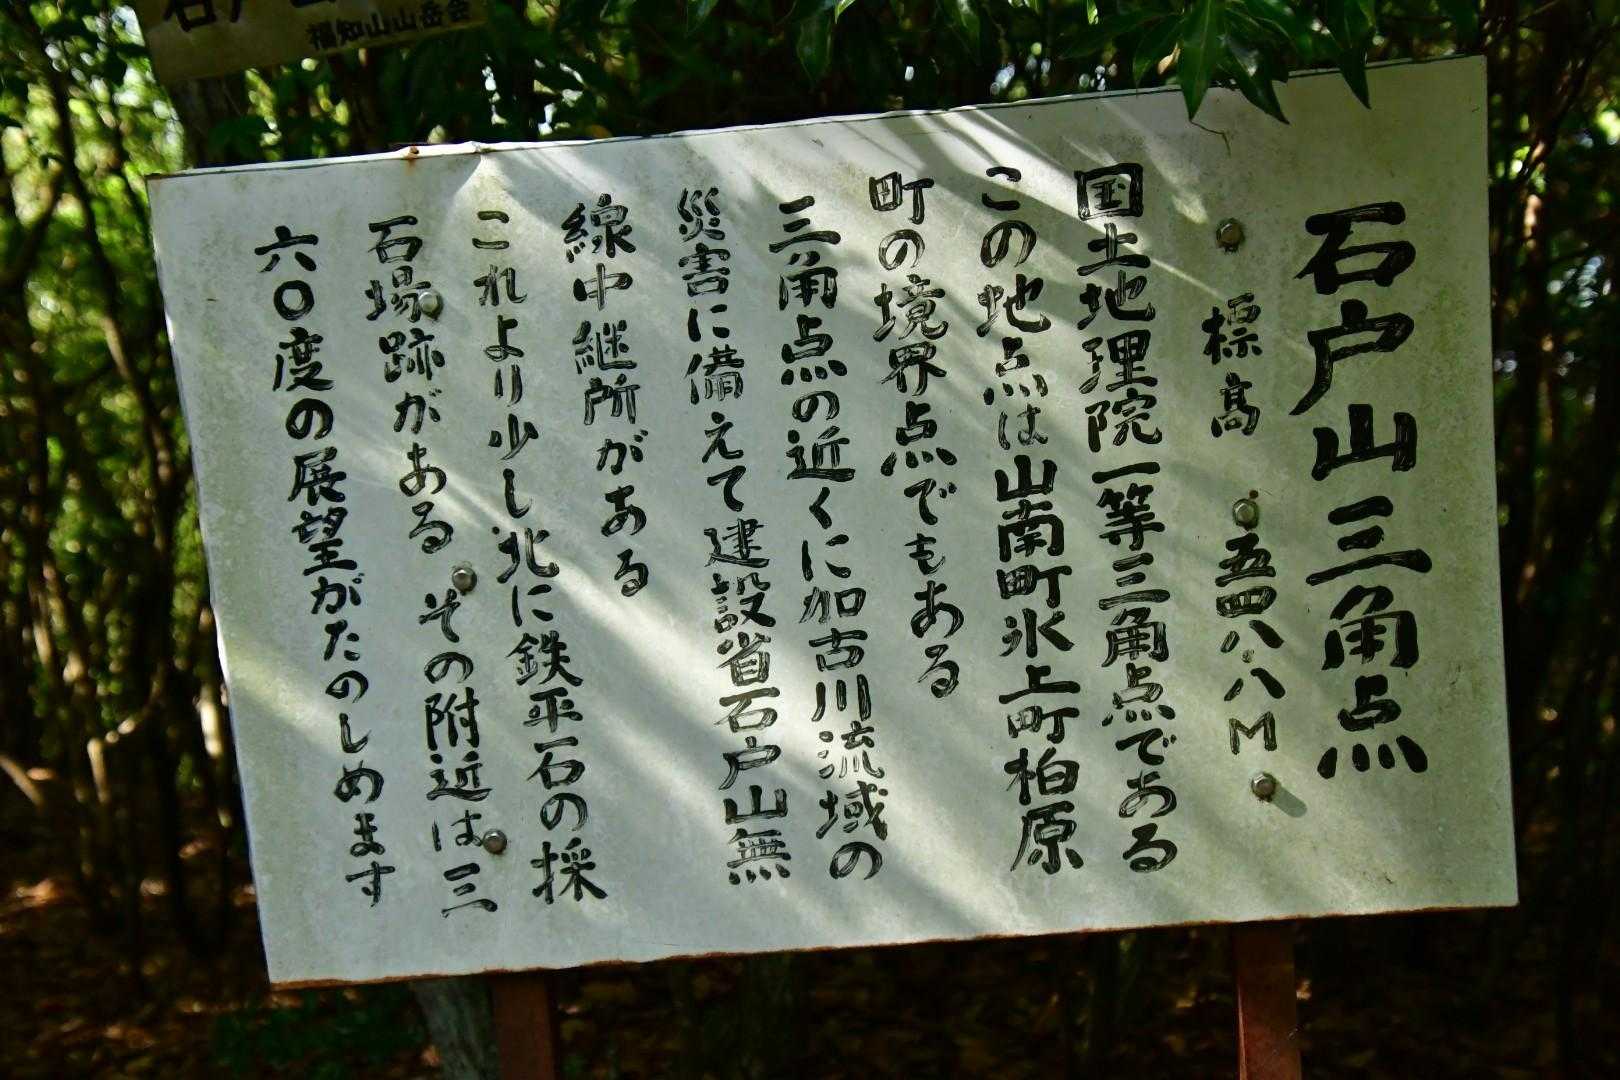 石戸山
福知山山岳会
石戸山三角点
標高 五四八.八M
国土地理院一等三角点である
この地点は山南町氷上町柏原
町の境界点でもある
三角点の近くに加古川流域の
災害に備えて建設省石戸山無
線中継所がある
これより少し北に鉄平石の採
石場跡がある その附近は三
六〇度の展望がたのしめます